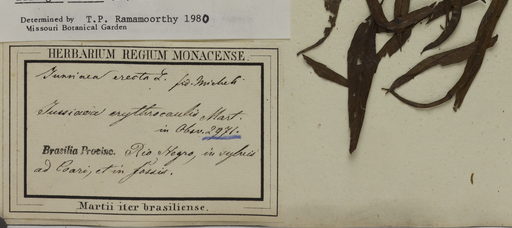 Determined by T.P. Ramamoorthy 1980
Missouri Botanical Garden
HERBARIUM REGIUM MONACENSE.
Jussiaea erecta L. fid. Micheli
Jussiaea erythrocaulis Mart.
in Obsv. 2971.
Brasilia Provinc. Rio Negro, in sylvis
ad Coari, et in fossis.
Martii iter brasiliense.